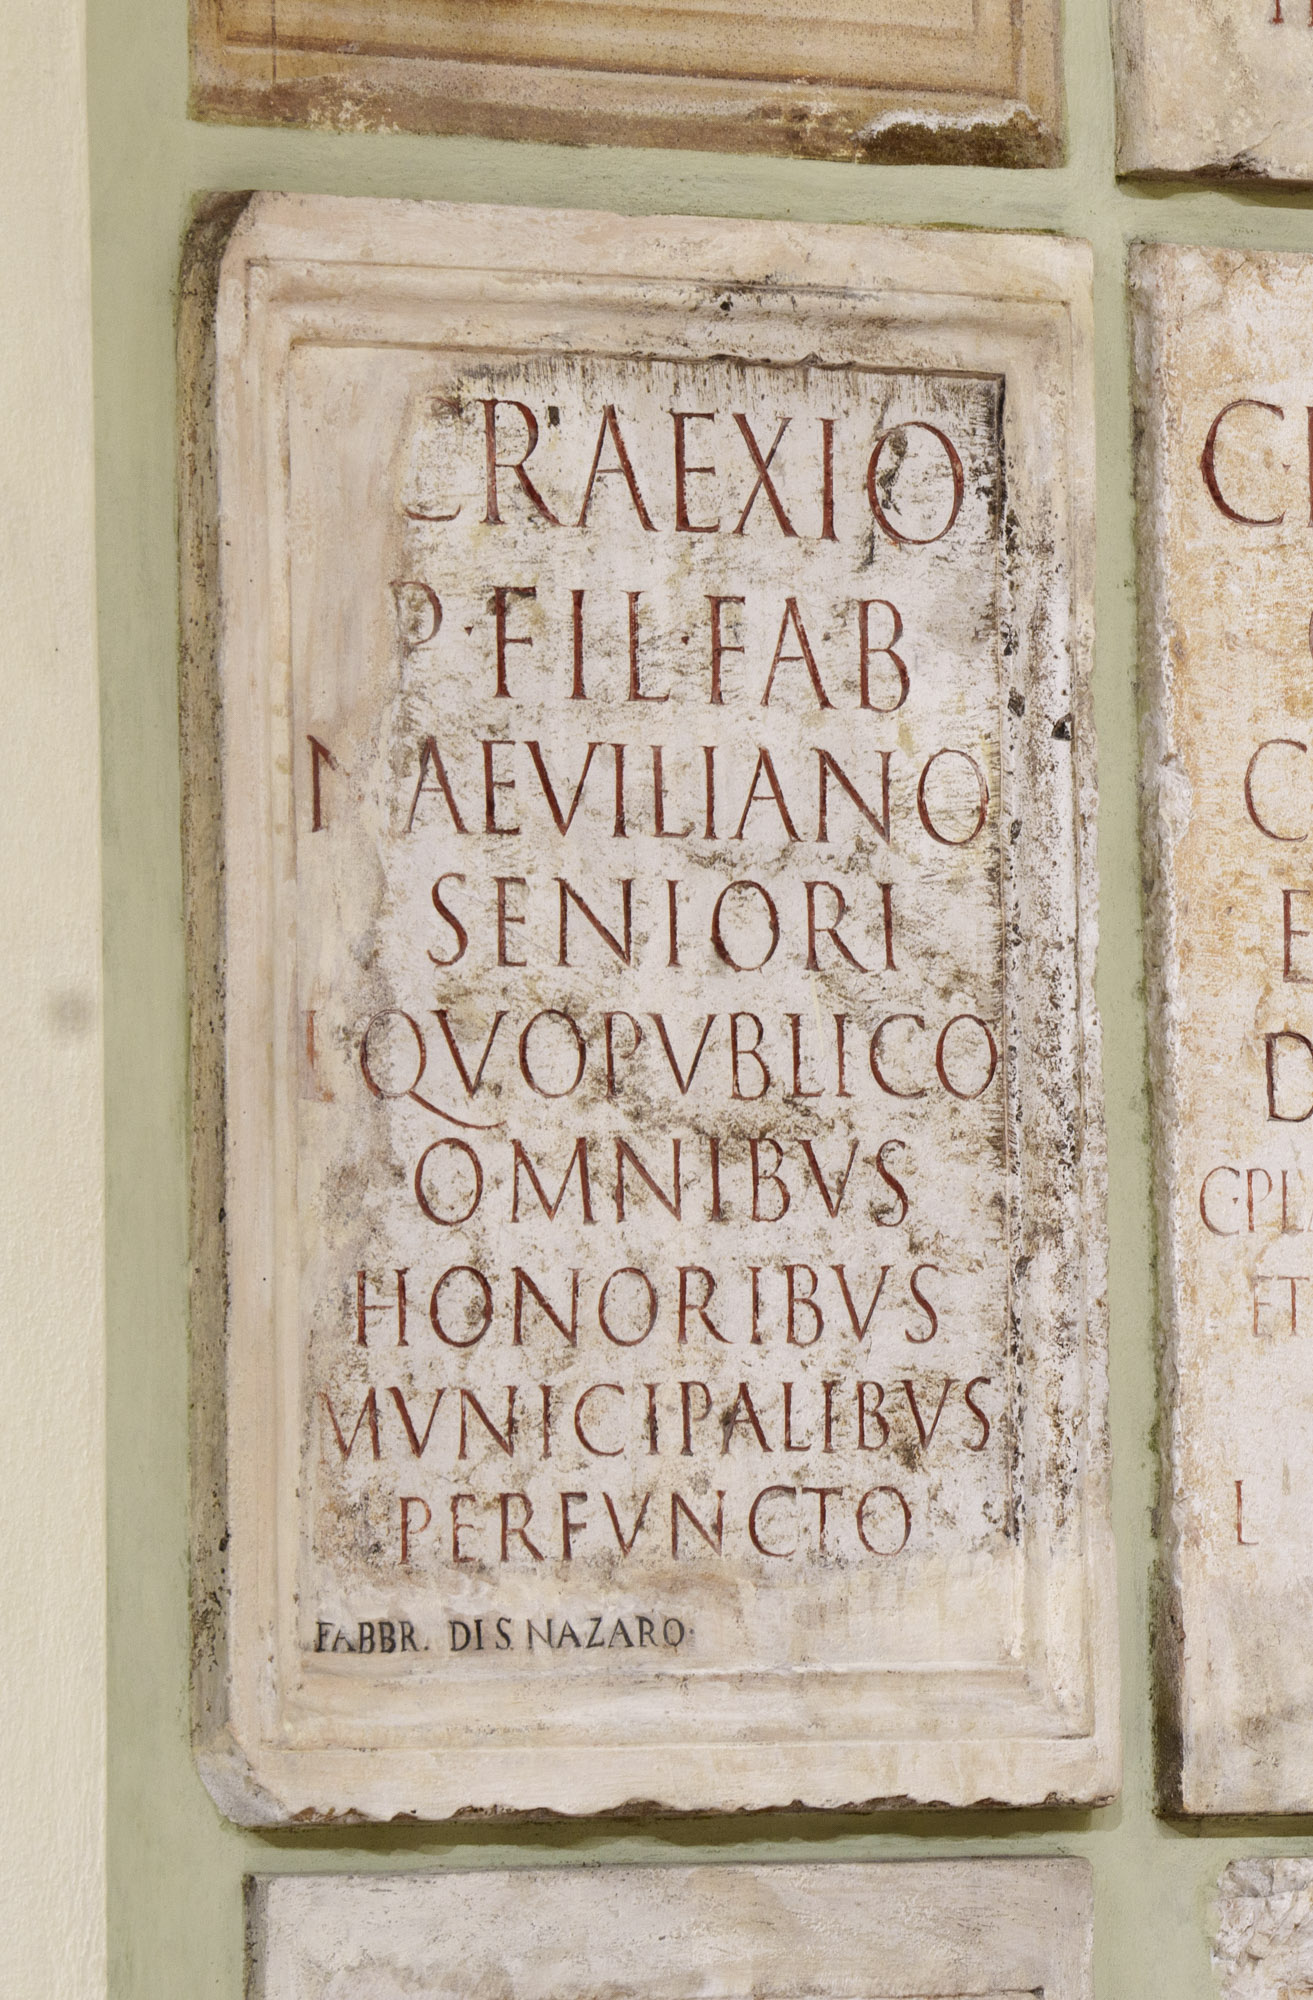 CRAEXIO
P·FIL·FAB
MAEVILIANO
SENIORI
EQVOPVBLICO
OMNIBVS
HONORIBVS
MVNICIPALIBVS
PERFVNCTO
FABBR. DI S NAZARO
C·PL
ET